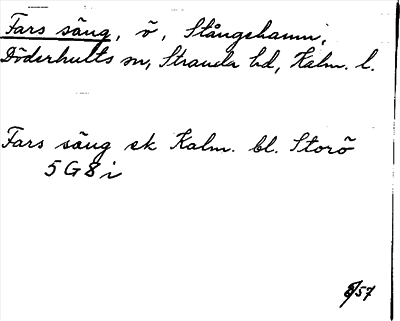 Fars säng, ö, Stångehamn,
Döderhults sn, Stranda hd, Kalm. l.
Fars säng ek Kalm. bl. Storö
5 G 8 i
8/57